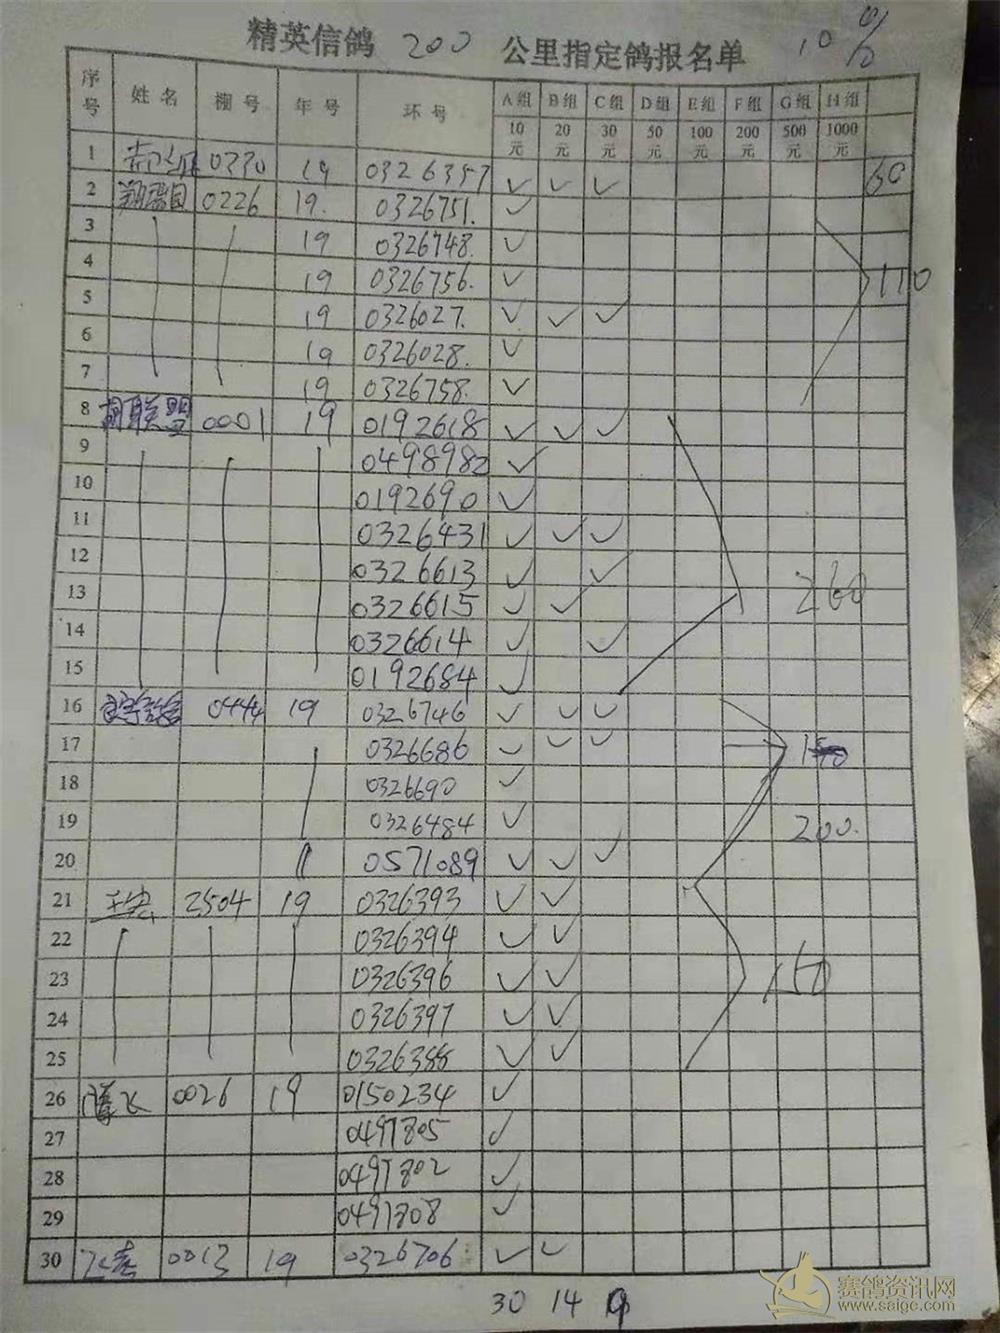 精英信鸽 200 公里指定鸽报名单 10%
序号 姓名 棚号 年号 环号 A组 B组 C组 D组 E组 F组 G组 H组
10元 20元 30元 50元 100元 200元 500元 1000元
1 0330 19 0326357 ✓ ✓ ✓ 60
2 0226 19. 0326751. ✓
3 19 0326748. ✓
4 19 0326756. ✓ 110
5 19 0326027. ✓ ✓ ✓
6 19 0326028. ✓
7 19 0326758. ✓
8 胡联盟 0001 19 0192618 ✓ ✓ ✓
9 0498982 ✓
10 0192690 ✓
11 0326431 ✓ ✓ ✓
12 0326613 ✓ ✓
13 0326615 ✓ ✓ 260
14 0326614 ✓ ✓
15 0192684 ✓
16 0444 19 0326746 ✓ ✓ ✓
17 0326686 ✓ ✓ ✓
18 0326690 ✓
19 0326484 ✓ 200.
20 11 0571089 ✓ ✓ ✓
21 2504 19 0326393 ✓ ✓
22 0326394 ✓ ✓
23 0326396 ✓ ✓ 150
24 0326397 ✓ ✓
25 0326388 ✓ ✓
26 腾飞 0026 19 0150234 ✓
27 0497805 ✓
28 0497802 ✓
29 0497808 ✓
30 0013 19 0326706 ✓ ✓
30 14 9
赛鸽资讯网
www.saigc.com